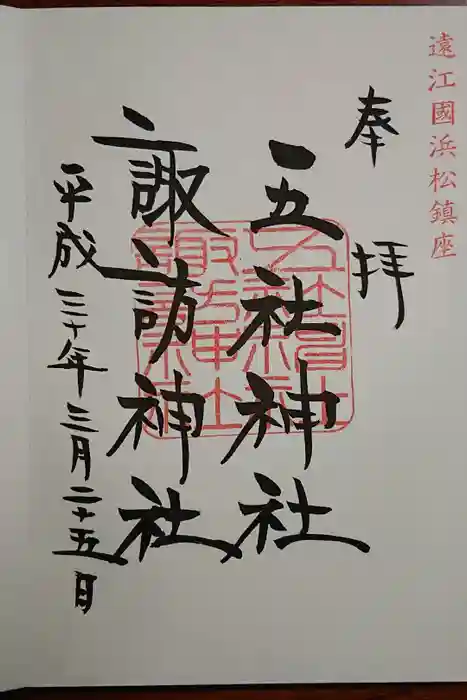 遠江國浜松鎮座
奉拝
五社神社
諏訪神社
平成三十年三月二十五日
五社神社
諏訪神社